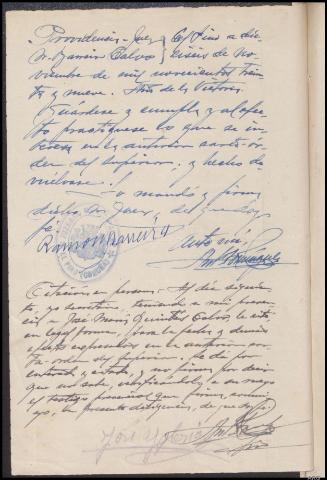 Providencia - Juez
Sr. Ramón Calvo
El Pino a diez
y seis de No-
viembre de mil novecientos trein-
ta y nueve. Año de la Victoria.
Guárdese y cumpla y al efec-
to practíquese lo que se in-
teresa en la anterior carta-or-
den del Superior, y hecho de-
vuélvase.
Lo mandó y firma
dicho Sr. Juez, doy
fé.
Ante mí,
Citación en persona: Al día siguien-
te, yo secretario, teniendo a mi presen-
cia José María Quintás Calvo, le cité
en legal forma, para la fecha y demás
expresados en la anterior car-
ta orden del Superior, se dá por
enterado y citado, y no firma por decir
que no sabe, a su ruego
el testigo presencial que firma, conmi-
go, la presente diligencia, de que doy fé.
José